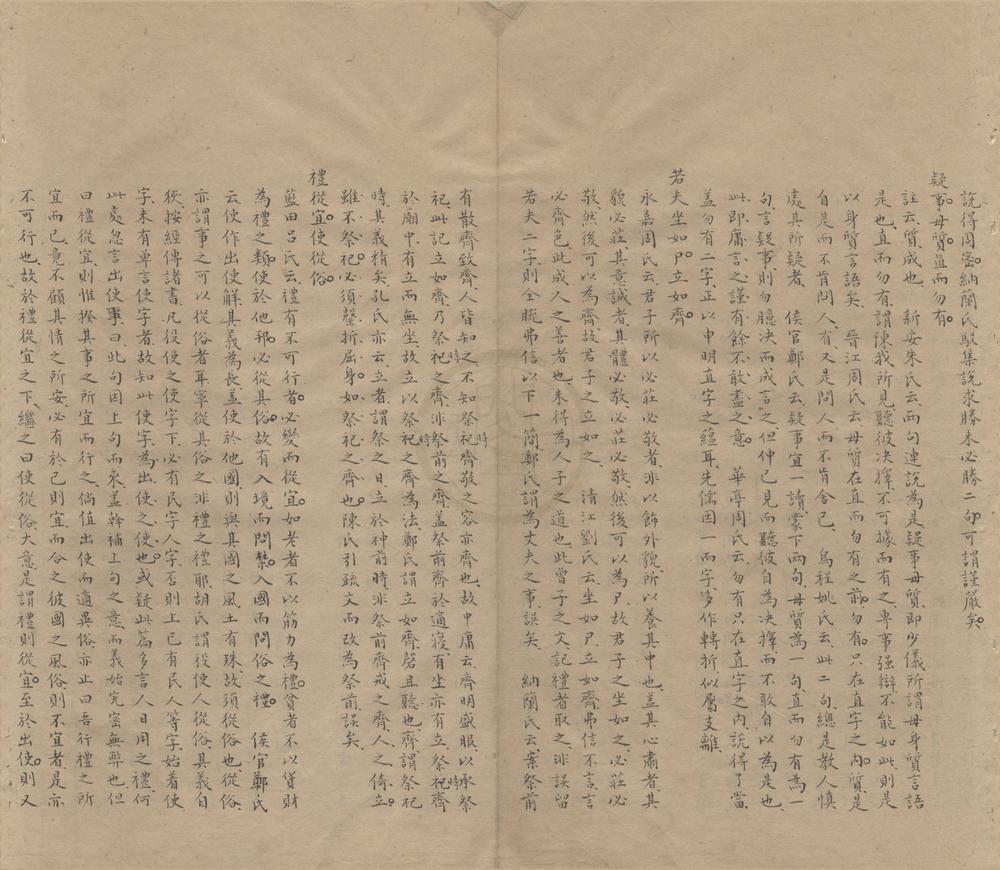 說得周密納蘭氏駁集說求勝未必勝二句可謂謹嚴矣
疑事毋質直而勿有
註云質成也　新安朱氏云兩句連說為是疑事毋質即少儀所謂毋身質言語
是也直而勿有謂陳我所見聽彼決擇不可據而有之專事强辯不能如此則是
以身質言語矣　晉江周氏云毋質在直而勿有之前勿有只在直字之內質是
自是而不肯問人有又是問人而不肯舍己　烏程姚氏云此二句總是教人慎
處其所疑者　侯官鄭氏云疑事宜一讀蒙下兩句毋質為一句直而勿有為一
句言疑事則勿臆決而成言之但伸己見而聽彼自為決擇而不敢自以為是也
此即庸言之謹有餘不敢盡之意　華亭周氏云勿有只在直字之內說得了當
蓋勿有二字正以申明直字之蘊耳先儒因一而字多作轉折似屬支離
若夫坐如尸立如齊
永嘉周氏云君子所以必莊必敬者非以飾外貌所以養其中也蓋其心肅者其
貌必莊其意誠者其體必敬必莊必敬然後可以為尸故君子之坐如之必莊必
敬然後可以為齊故君子之立如之　清江劉氏云坐如尸立如齊弗信不言言
必齊色此成人之善者也未得為人子之道也此曾子之文記禮者取之非誤留
若夫二字則全脫弗信以下一簡鄭氏謂為丈夫之事誤矣　納蘭氏云案祭前
有散齊致齊人皆知之不知祭祀時齊敬之容亦齊也故中庸云齊明盛服以承祭
祀此記立如齊乃祭祀之時齊非祭前之齊蓋祭前齊於適寢有坐亦有立祭祀時齊
於廟中有立而無坐故立以祭祀之時齊為法鄭氏謂立如齊磬且聽也齊謂祭祀
時其義精矣孔氏亦云立者謂祭之日立於神前時非祭前齊戒之齊人之倚立
雖不祭祀必須磬折屈身如祭祀之齊也陳氏引疏文而改為祭前誤矣
禮從宜使從俗
藍田呂氏云禮有不可行者必變而從宜如老者不以筋力為禮貧者不以貨財
為禮之類使於他邦必從其俗故有入境而問禁入國而問俗之禮　侯官鄭氏
云使作出使解其義為長蓋使於他國則與其國之風土有殊故須從俗也從俗
亦謂事之可以從俗者耳寧從其俗之非禮之禮耶胡氏謂役使人從俗其義自
狹按經傳諸書凡役使之使字下必有民字人字否則上已有民人等字始着使
字未有單言使字者故知此使字為出使之使也或疑此篇多言人日用之禮何
此處忽言出使事曰此句因上句而來蓋斡補上句之意而義始完密無弊也但
曰禮從宜則惟揆其事之所宜而行之倘值出使而適異俗亦止曰吾行禮之所
宜而已竟不顧其情之所安必有於己則宜而合之彼國之風俗則不宜者是亦
不可行也故於禮從宜之下繼之曰使從俗大意是謂禮則從宜至於出使則又